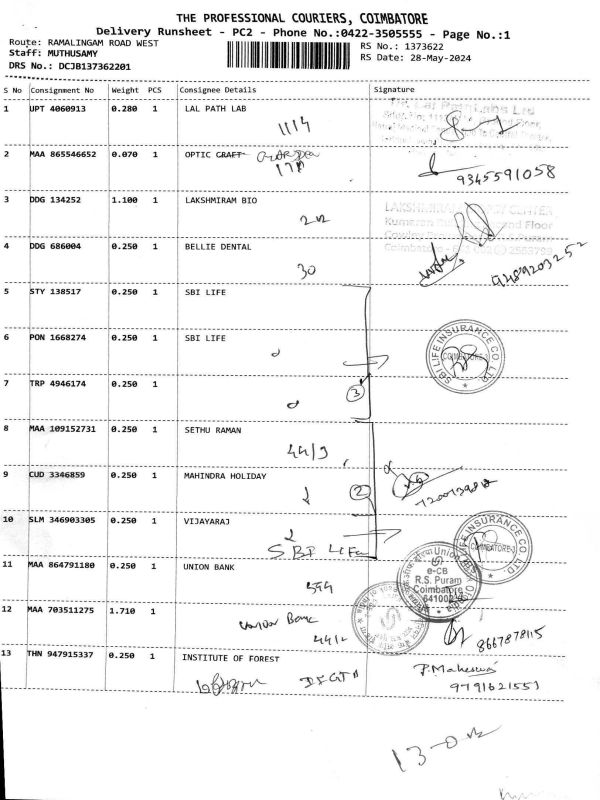 THE PROFESSIONAL COURIERS, COIMBATORE
Delivery Runsheet - PC2 - Phone No.:0422-3505555 - Page No.:1
Route: RAMALINGAM ROAD WEST
RS No.: 1373622
Staff: MUTHUSAMY
RS Date: 28-May-2024
DRS No.: DCJB137362201
S No Consignment No Weight PCS Consignee Details Signature
1 UPT 4060913 0.280 1 LAL PATH LAB
1114
2 MAA 865546652 0.070 1 OPTIC CRAFT
9345591058
3 DDG 134252 1.100 1 LAKSHMIRAM BIO
4 DDG 686004 0.250 1 BELLIE DENTAL
30
9489203252
5 STY 138517 0.250 1 SBI LIFE
6 PON 1668274 0.250 1 SBI LIFE
SBI LIFE INSURANCE CO. LTD. COIMBATORE-3
7 TRP 4946174 0.250 1
3
8 MAA 109152731 0.250 1 SETHU RAMAN
44/9
9 CUD 3346859 0.250 1 MAHINDRA HOLIDAY
2
10 SLM 346903305 0.250 1 VIJAYARAJ
SBI Life
COIMBATORE-3
11 MAA 864791180 0.250 1 UNION BANK
Union
e-CB
R.S. Puram
Coimbatore
12 MAA 703511275 1.710 1
Bank
8667878115
13 THN 947915337 0.250 1 INSTITUTE OF FOREST
P. Maheswari
9791621551